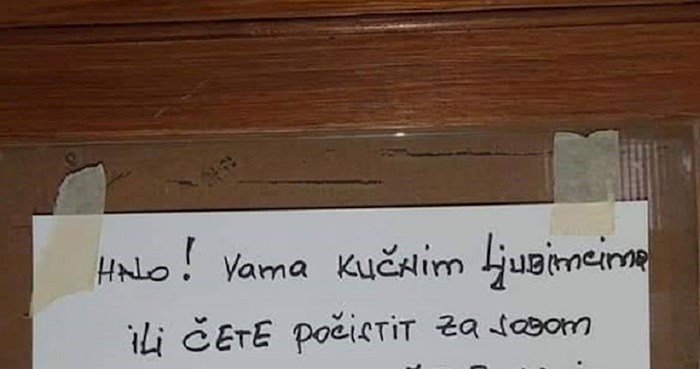 HALO! Vama KUČNim LJUBimcima
iLi ČETE POČISTIT Za SOBOM